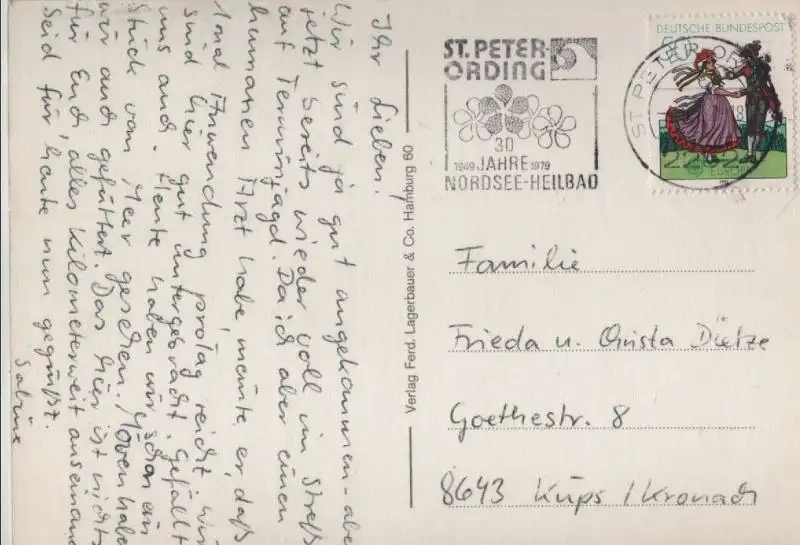 Ihr Lieben!
Wir sind ja gut angekommen - abe
jetzt bereits wieder voll im Streß
auf Terminjagd. Da ich aber einen
humanen Arzt habe, meinte er, daß
1 mal Anwendung pro Tag reicht. Wir
sind hier gut untergebracht. Gefällt
uns auch. Heute haben wir schon ein
Stück vom Meer gesehen. Möven habe
wir auch gefüttert. Das hier ist nichts
für Euch, alles kilometerweit auseinand
Seid für heute nun gegrüßt.
Sabine
Verlag Ferd. Lagerbauer & Co. Hamburg 60
ST. PETER-
ORDING
30
1949 JAHRE 1979
NORDSEE-HEILBAD
DEUTSCHE BUNDESPOST
ST PETER-OR
EUROPA
Familie
Frieda u. Christa Dietze
Goethestr. 8
8643 Küps / Kronach